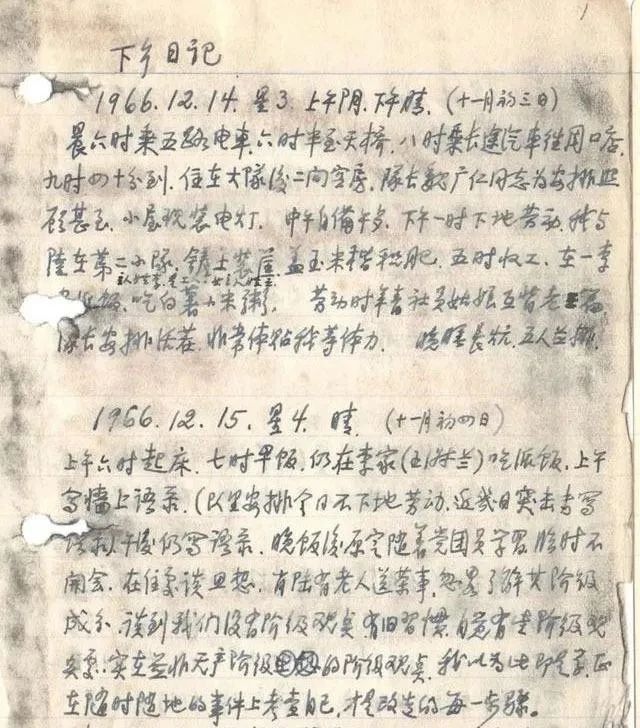 1
下乡日记
1966.12.14. 星3. 上午阴. 下午晴. (十一月初三日)
晨六时乘五路电车. 六时半至天桥. 八时乘长途汽车往周口店.
九时四十分到. 住在大队後二间空房. 队长魏广仁同志为安排照
顾甚至. 小屋现装电灯. 中午自备午步. 下午一时下地劳动. 我与
陆在第二小队. 铲土装 盖玉米稭积肥. 五时收工. 在一李
派饭. 吃白薯小米粥. 劳动时年青社员姑娘互背老 篇.
队长安排活茬. 非常体贴我等体力. 晚睡长炕. 五人并排.
1966. 12. 15. 星4. 晴. (十一月初四日)
上午六时起床. 七时早饭. 仍在李家 吃派饭. 上午
写墙上语录. (队里安排今日不下地劳动. 近几日突击书写
语录) 午後仍写语录. 晚饭後原定随着党团员学习. 临时不
开会. 在住处谈思想. 有陆有老人送菜事. 忽略了解其阶级
成分. 谈到我们没有阶级观点. 有旧习惯. 自觉有些阶级观
实在并非无产阶级 的阶级观点. 我以为此即是 正
在随时随地的事件上考查自己. 才是改造的每一步骤。